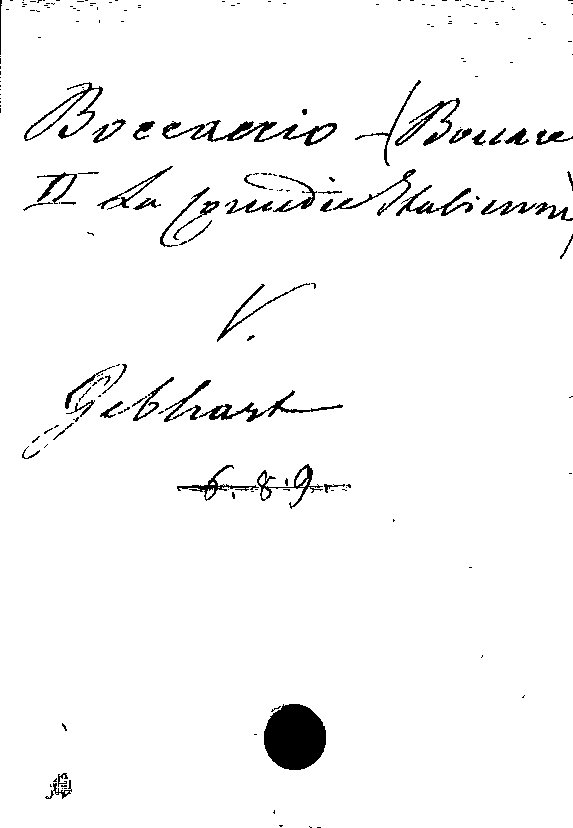 Boccaccio - (Boccace
II La Comédie Italienne)
V.
Gebhart
6. 8. 9.